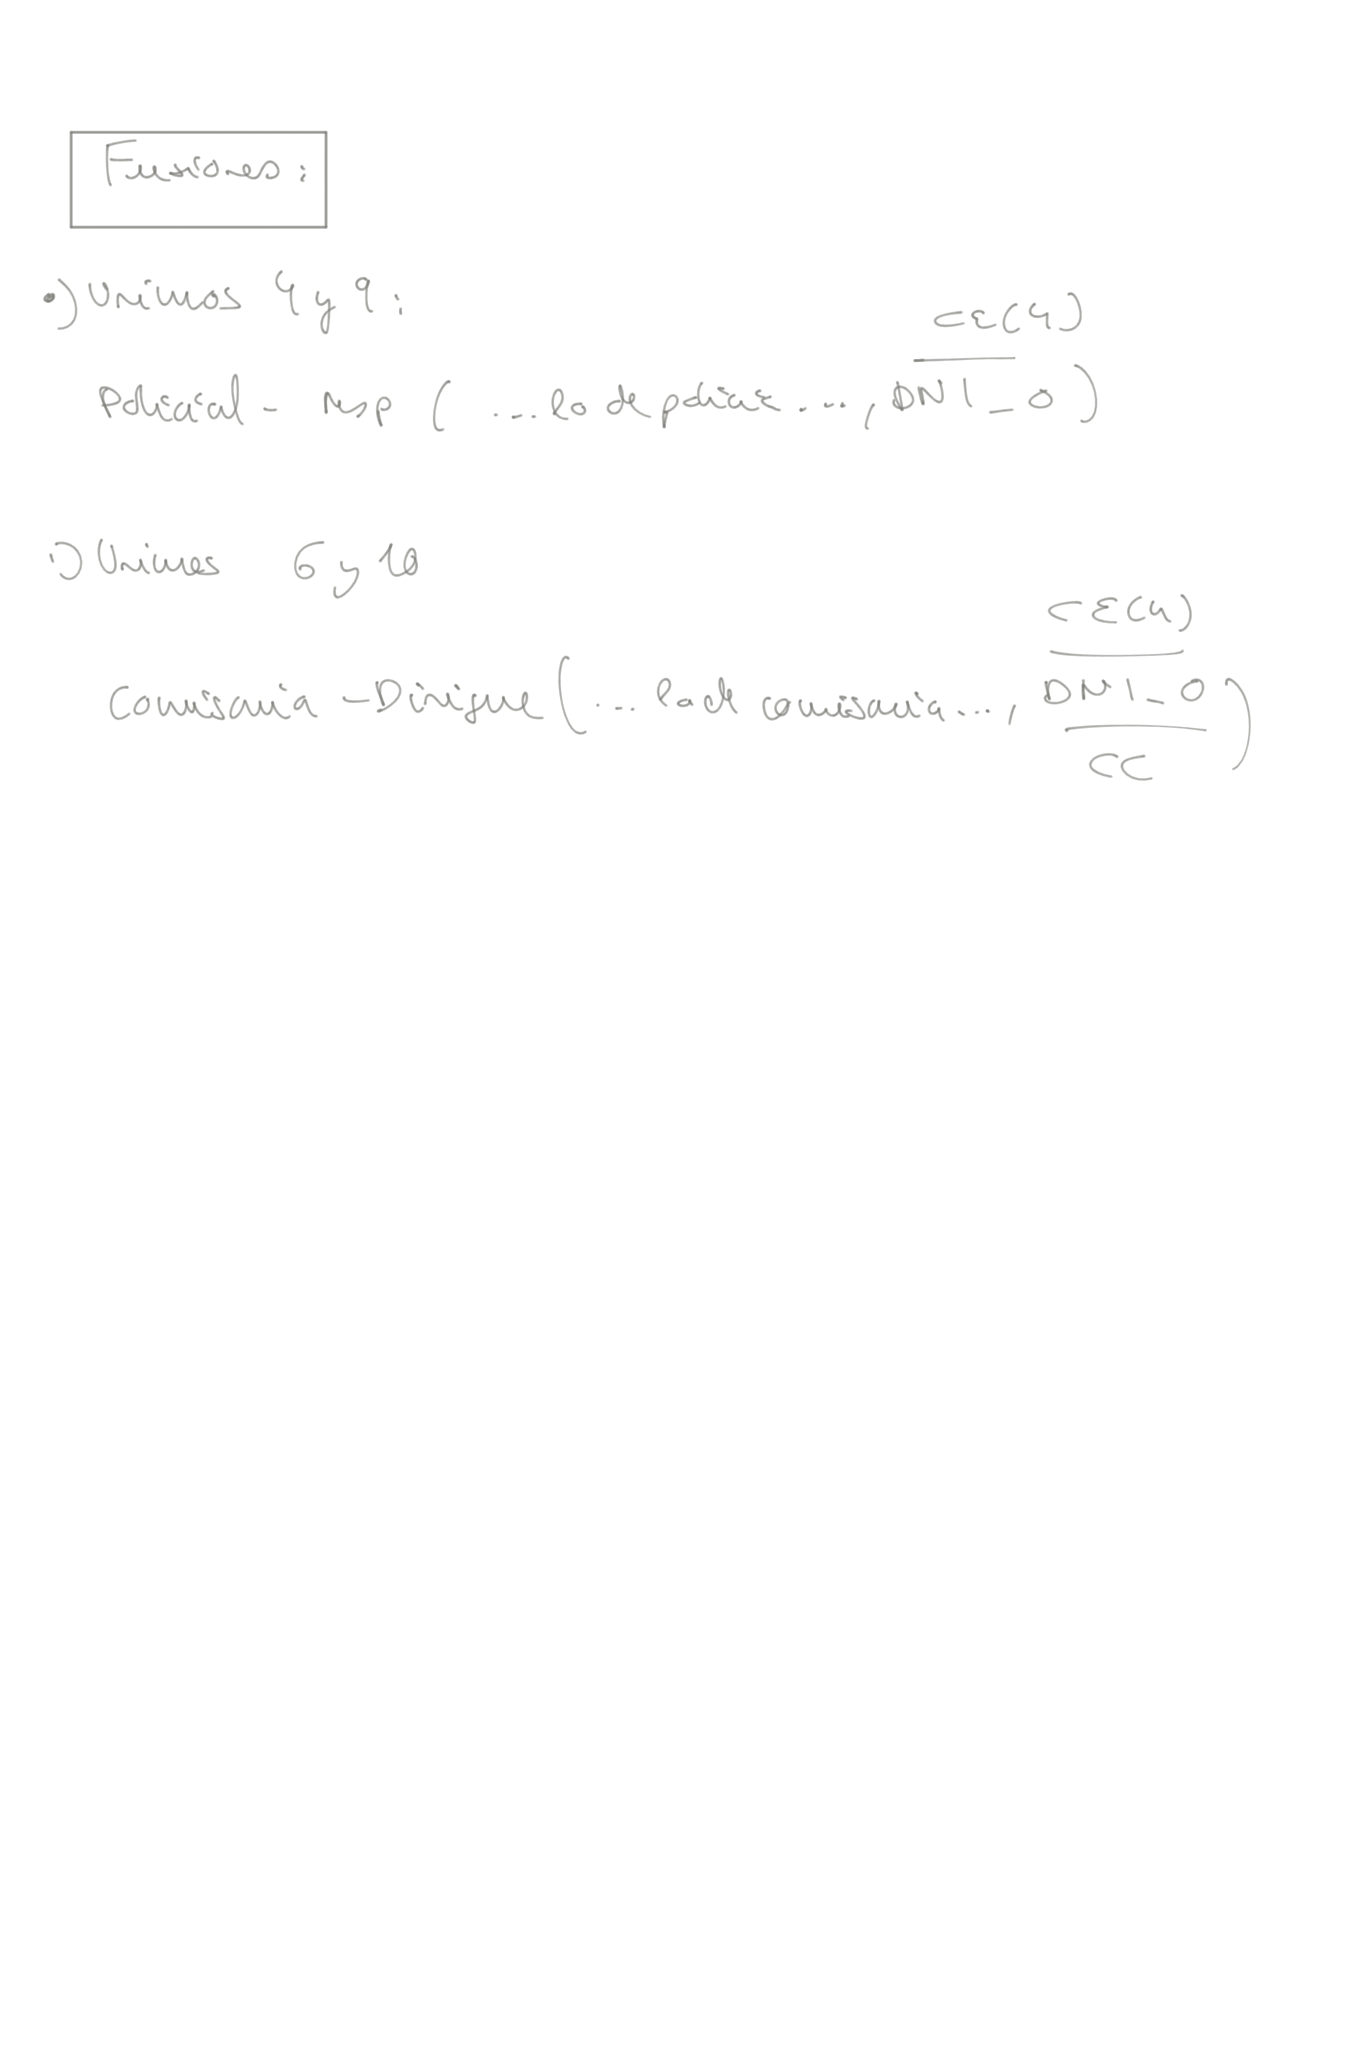 Fusiones:
•) Unimos 4 y 9:
CE(4)
Policial - resp ( ... lo de policia ..., DNI_O)
•) Unimos 6 y 10
CE(4)
Comisaria - Dirigue ( ... lo de comisaria ..., DNI_O)
CC